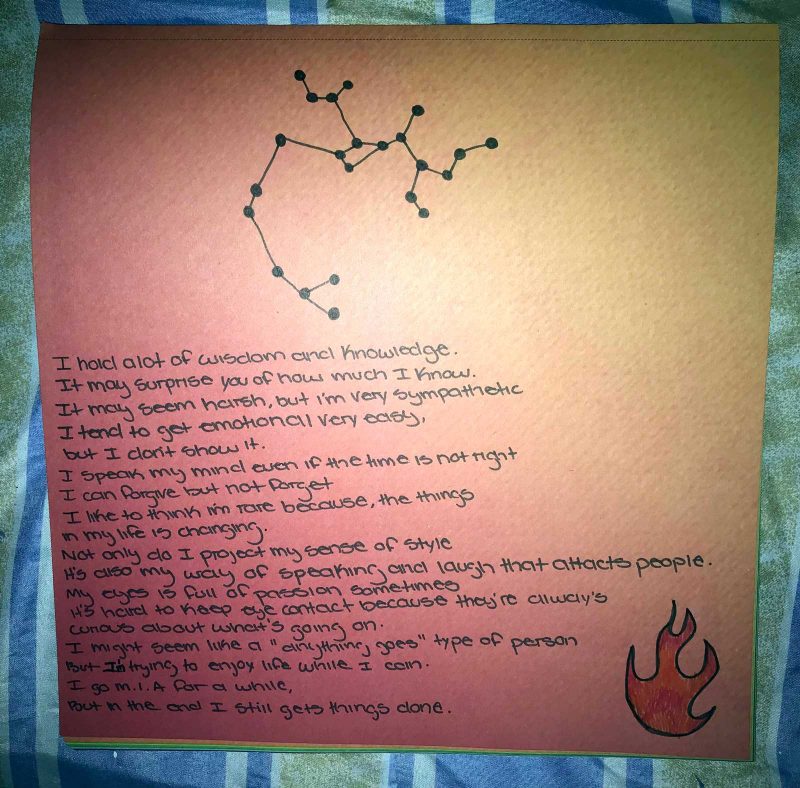 I hold alot of wisdom and knowledge.
It may surprise you of how much I know.
It may seem harsh, but i'm very sympathetic
I tend to get emotional very easy,
but I don't show it.
I speak my mind even if the time is not right
I can forgive but not forget
I like to think i'm rare because, the things
in my life is changing.
Not only do I project my sense of style
it's also my way of speaking and laugh that attacts people.
My eyes is full of passion sometimes
it's hard to keep eye contact because they're allway's
curious about what's going on.
I might seem like a "anything goes" type of person
But I'm trying to enjoy life while I can.
I go M.I.A for a while,
But in the end I still gets things done.